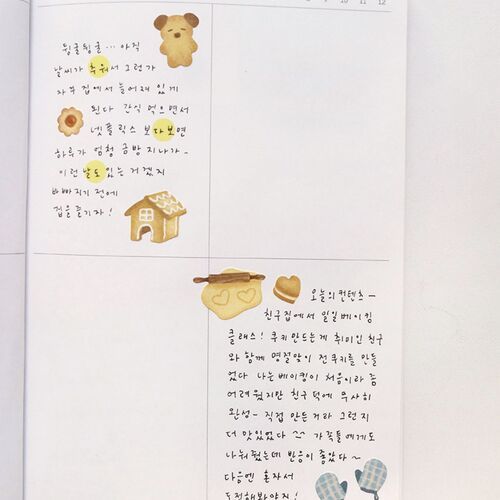 9 10 11 12
뒹굴뒹굴… 아직
날씨가 추워서 그런가
자꾸 집에서 늘어져 있게
된다 간식 먹으면서
넷플릭스 보다보면
하루가 엄청 금방 지나가~
이런 날도 있는 거겠지
바빠지기 전에
집을 즐기자!
오늘의 컨텐츠~
친구집에서 일일베이킹
클래스! 쿠키만드는게 취미인 친구
와 함께 명절맞이 전쿠키를 만들
었다 나는 베이킹이 처음이라 좀
어려웠지만 친구 덕에 무사히
완성~ 직접 만든거라 그런지
더 맛있었다 ^^ 가족들에게도
나눠줬는데 반응이 좋았다~
다음엔 혼자서
도전해봐야지!